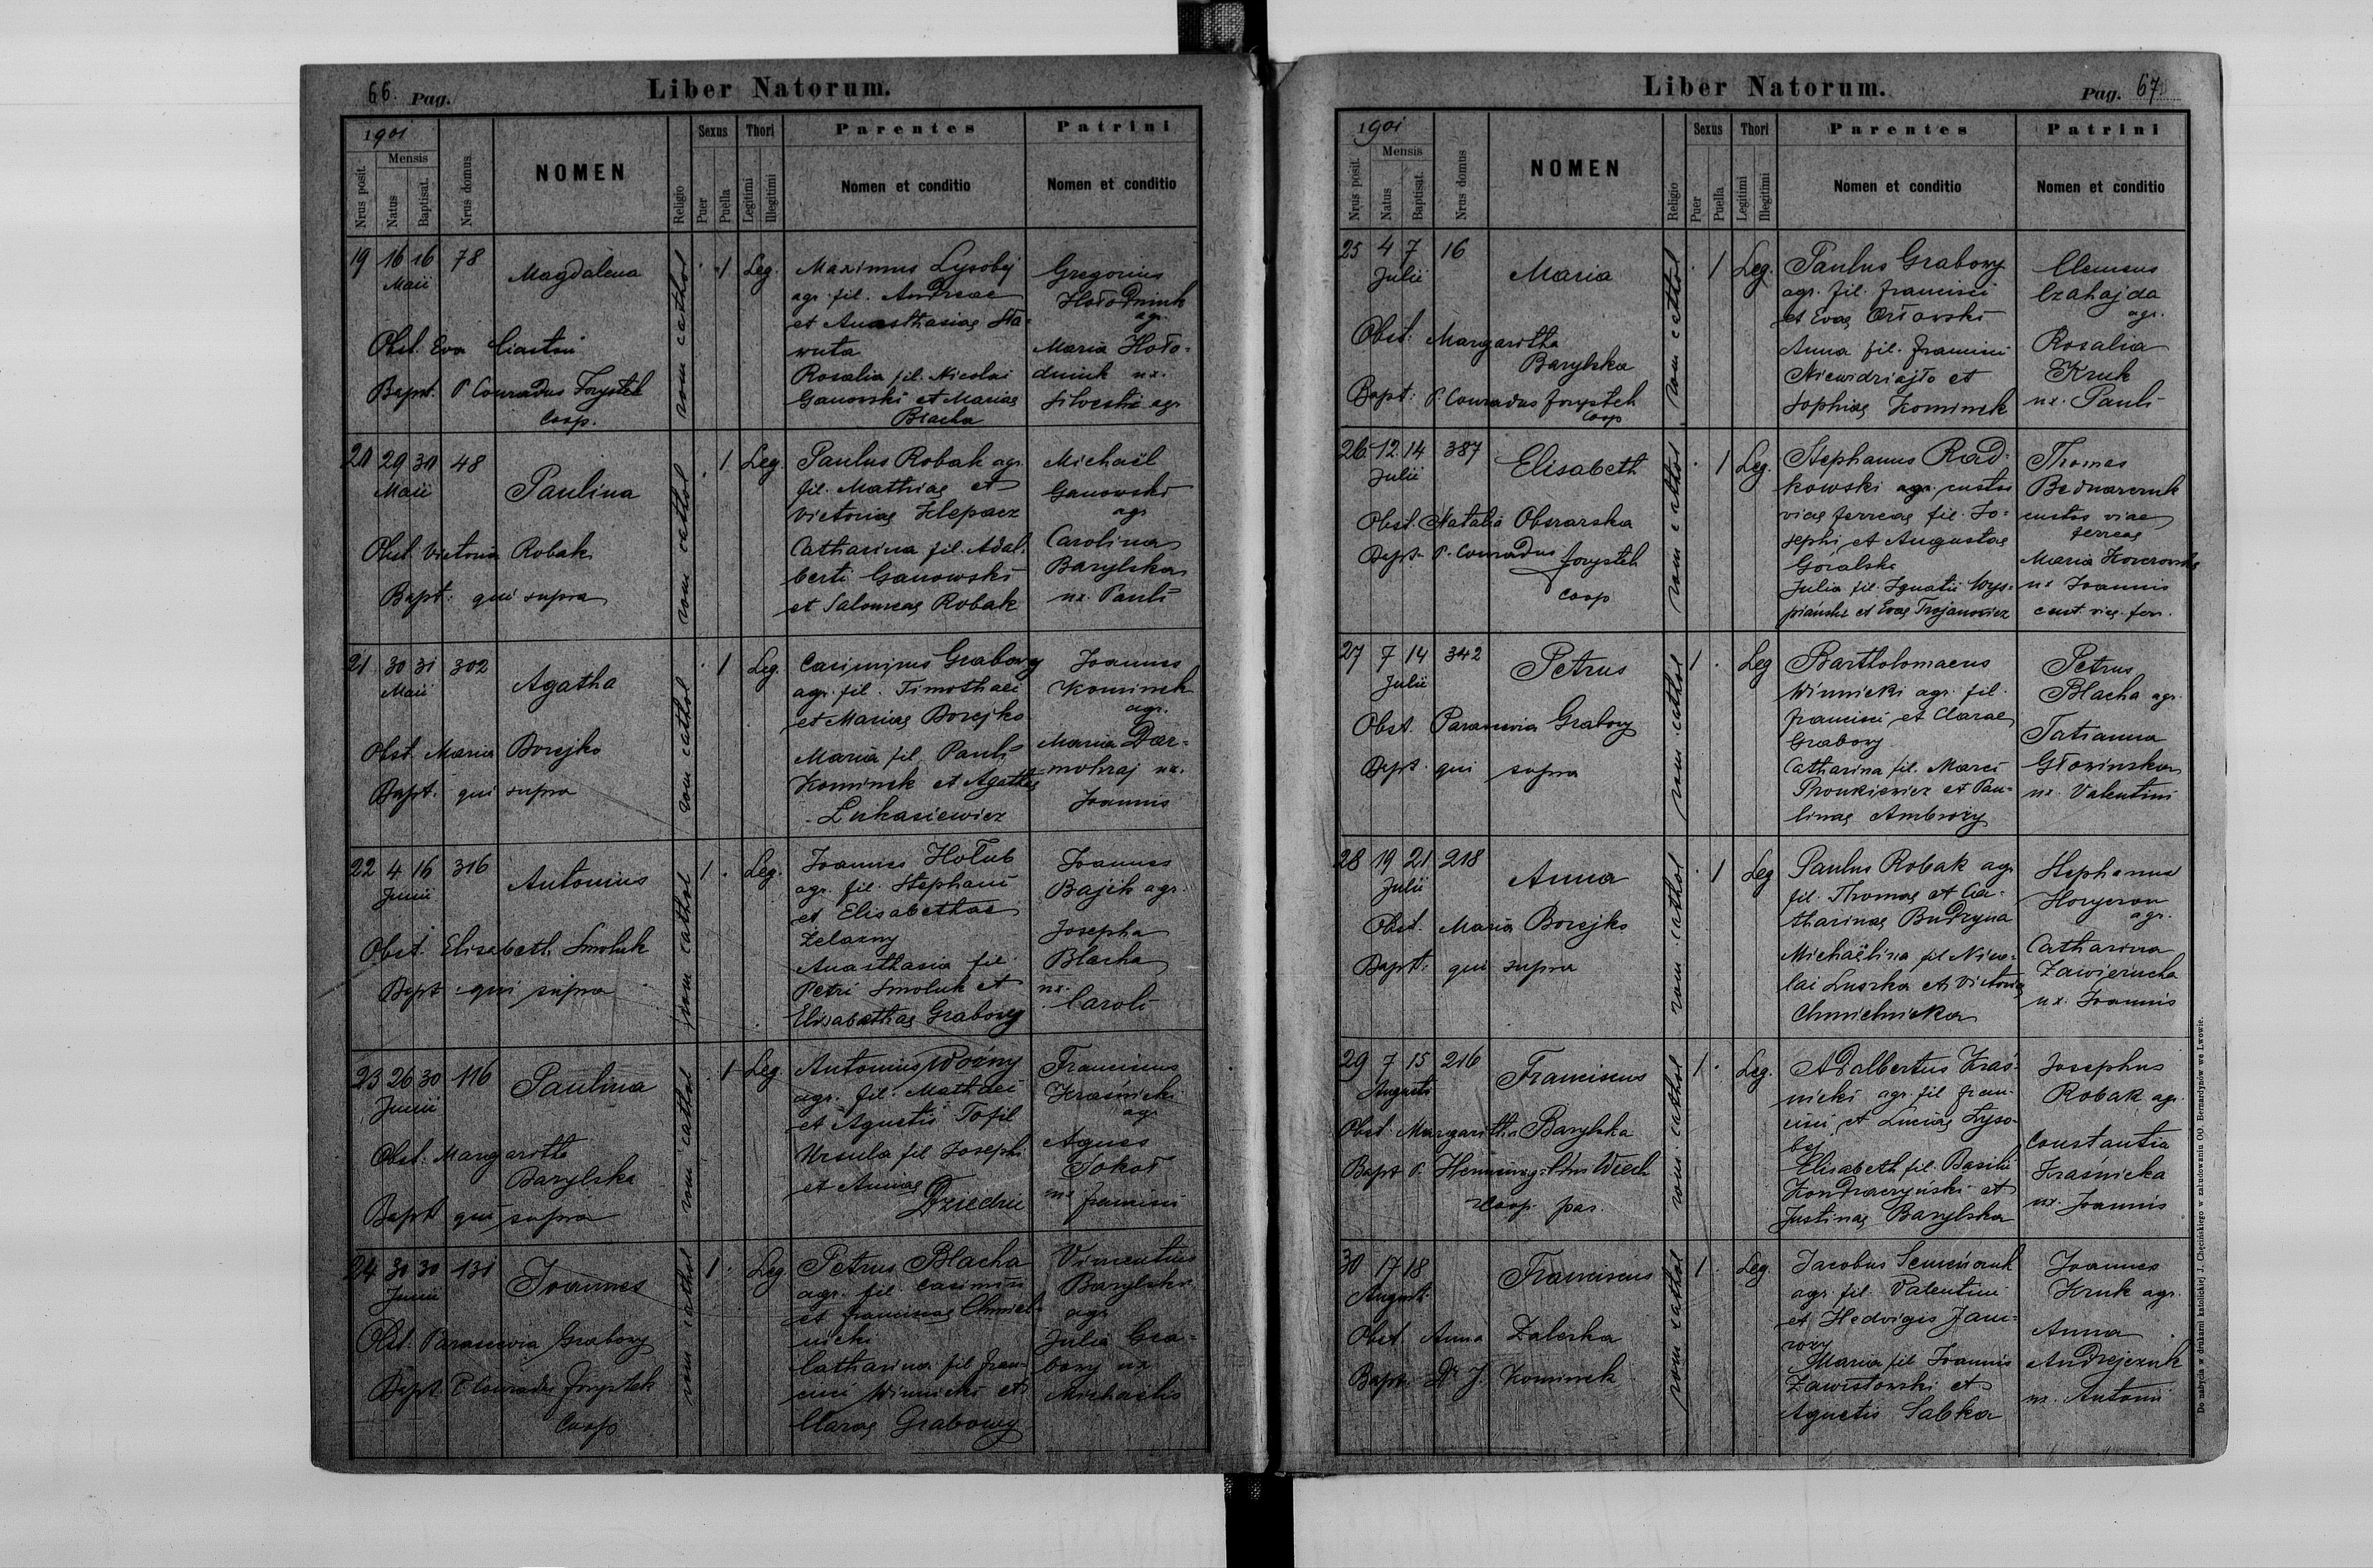 66. Pag.
Liber Natorum.
1901
Nrus posit.
Mensis
Natus
Baptisat.
Nrus domus
NOMEN
Religio
Sexus
Puer
Puella
Thori
Legitimi
Illegitimi
Parentes
Nomen et conditio
Patrini
Nomen et conditio
19 16 16 78
Maii
Magdalena
Obst. Eva
Bapt. P. Conradus Forystek
Coop.
rom cathol
1 Leg.
Maximus Lysobej
agr. fil. Andreae
et Anasthasiae Sła-
wuta
Rosalia fil. Nicolai
Ganowski et Mariae
Blacha
Gregorius
Hołodniuk
agr.
Maria Hoło-
dniuk ux.
Silvestri agr
20 29 30 48
Maii
Paulina
Obst. Victoria Robak
Bapt. qui supra
rom cathol
1 Leg.
Paulus Robak agr.
fil. Mathiae et
Victoriae Klepacz
Catharina fil. Adal-
berti Ganowski
et Salomeae Robak
Michaël
Ganowski
agr
Carolina
Barylska
ux. Pauli
21 30 31 302
Maii
Agatha
Obst. Maria Borejko
Bapt. qui supra
rom cathol
1 Leg.
Casimirus Grabowy
agr. fil. Timothaei
et Mariae Borejko
Maria fil. Pauli
Kominek et Agathae
Lukasiewicz
Joannes
Kominek
agr.
Maria Dar-
mohraj ux.
Joannis
22 4 16 316
Junii
Antonius
Obst. Elisabeth Smoluk
Bapt qui supra
rom cathol
1 Leg.
Joannes Hołub
agr. fil. Stephani
et Elisabethae
Żelazny
Anasthasia fil.
Petri Smoluk et
Elisabethae Grabowy
Joannes
Bajik agr.
Josepha
Blacha
ux.
Caroli
23 26 30 116
Junii
Paulina
Obst. Margaritta
Barylska
Bapt qui supra
rom cathol
1 Leg
Antonius Woźny
agr. fil. Mathaei
et Agnetis Tofil
Ursula fil Josephi
et Annae
Franciscus
Kraśnicki
agr
Agnes
Sokoł
ux Francisci
24 30 30 131
Junii
Joannes
Obst. Parascevia Grabowy
Bapt P Conradus Forystek
Coop
rom cathol
1 Leg
Petrus Blacha
agr. fil. Casimiri
et Franciscae Chmiel-
nicki
Catharina fil Fran-
cisci Winnicki et
Clarae Grabowy
Vincentius
Barylski
agr
Julia Gra-
bowy ux
Michaëlis
Liber Natorum.
Pag. 67
1901
Nrus posit.
Mensis
Natus
Baptisat.
Nrus domus
NOMEN
Religio
Sexus
Puer
Puella
Thori
Legitimi
Illegitimi
Parentes
Nomen et conditio
Patrini
Nomen et conditio
25 4 7 16
Julii
Maria
Obst. Margaritha
Barylska
Bapt: P. Conradus Forystek
Coop
rom cathol
1 Leg.
Paulus Grabowy
agr. fil. Francisci
et Evae Orłowski
Anna fil. Francisci
Niewidziajło et
Sophiae Kominek
Clemens
Czahajda
agr.
Rosalia
Kruk
ux. Pauli
26 12 14 387
Julii
Elisabeth
Obst. Natalia Obszarska
Bapt. P. Conradus Forystek
Coop
rom cathol
1 Leg.
Stephanus Rad-
kowski agr. custos
viae ferreae fil. Jo-
sephi et Augustae
Góralski
Julia fil. Ignatii Wys-
piański et Evae Trojanowicz
Thomas
Bednarczuk
custos viae
ferreae
Maria
ux Joannis
cust. viae ferr.
27 7 14 342
Julii
Petrus
Obst. Parascevia Grabowy
Bapt. qui supra
rom cathol
1 Leg
Bartholomaeus
Winnicki agr. fil.
Francisci et Clarae
Grabowy
Catharina fil. Marci
et Pau-
linae Ambroży
Petrus
Blacha agr.
Tatianna
Głowinska
ux. Valentini
28 19 21 218
Julii
Anna
Obst. Maria Borejko
Bapt. qui supra
rom cathol
1 Leg
Paulus Robak agr
fil. Thomae et Ca-
tharinae Budzyna
Michaëlina fil Nico-
lai Luszka et Victoriae
Chmielnicka
Stephanus
Horyzon
agr.
Catharina
Zawierucha
ux. Joannis
29 7 15 216
Augusti
Franciscus
Obst. Margaritta Barylska
Bapt P.
Coop. par.
rom cathol
1 Leg.
Adalbertus Kraś-
nicki agr. fil Fran-
cisci et Luciae Lyso-
bej
Elisabeth fil. Basilii
Kondraczyński et
Justinae Barylska
Josephus
Robak agr.
Constantia
Kraśnicka
ux. Joannis
30 17 18
August.
Franciscus
Obst. Anna Zaleska
Bapt. Dr J. Kominek
rom cathol
1 Leg.
Jacobus Semeńczuk
agr. fil. Valentini
et Hedvigis Jawo-
rowy
Maria fil Joannis
Zawistowski et
Agnetis Sabka
Joannes
Kruk agr.
Anna
Andrejczuk
ux. Antonii
Do nabycia w drukarni katolickiej J. Chęcińskiego w zabudowaniu OO. Bernardynów we Lwowie.